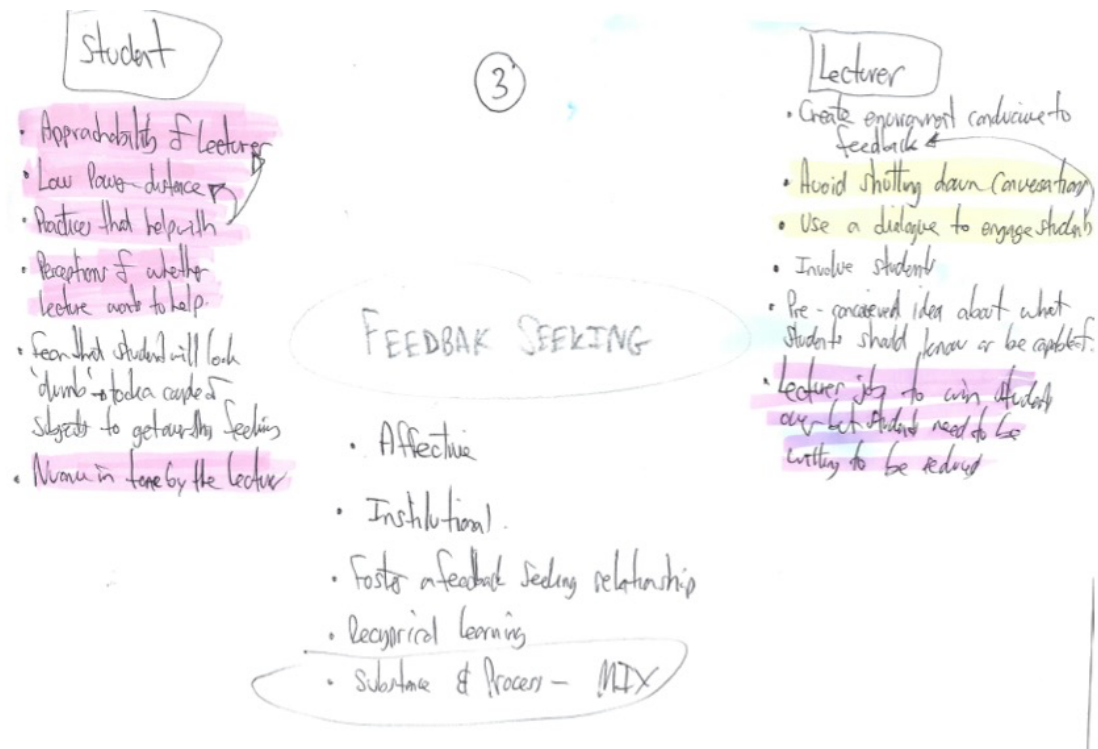 Student
• Approachability of Lecturer
• Low Power-distance
• Practices that help with
• Perceptions of whether
lecture wants to help.
• fear that student will look
'dumb' →
subjects to get over this feeling
• Nuance in tone by the lecturer
3
FEEDBAK SEEKING
• Affective
• Institutional.
• Foster a feedback seeking relationship
• Recyprical learning
• Substance & Process - MIX
Lecturer
• Create environment conducive to
feedback
• Avoid shutting down Conversation
• Use a dialogue to engage students
• Involve students
• Pre-conceived idea about what
students should know or be capable of.
• Lecturer job to win student
over but students need to be
willing to be